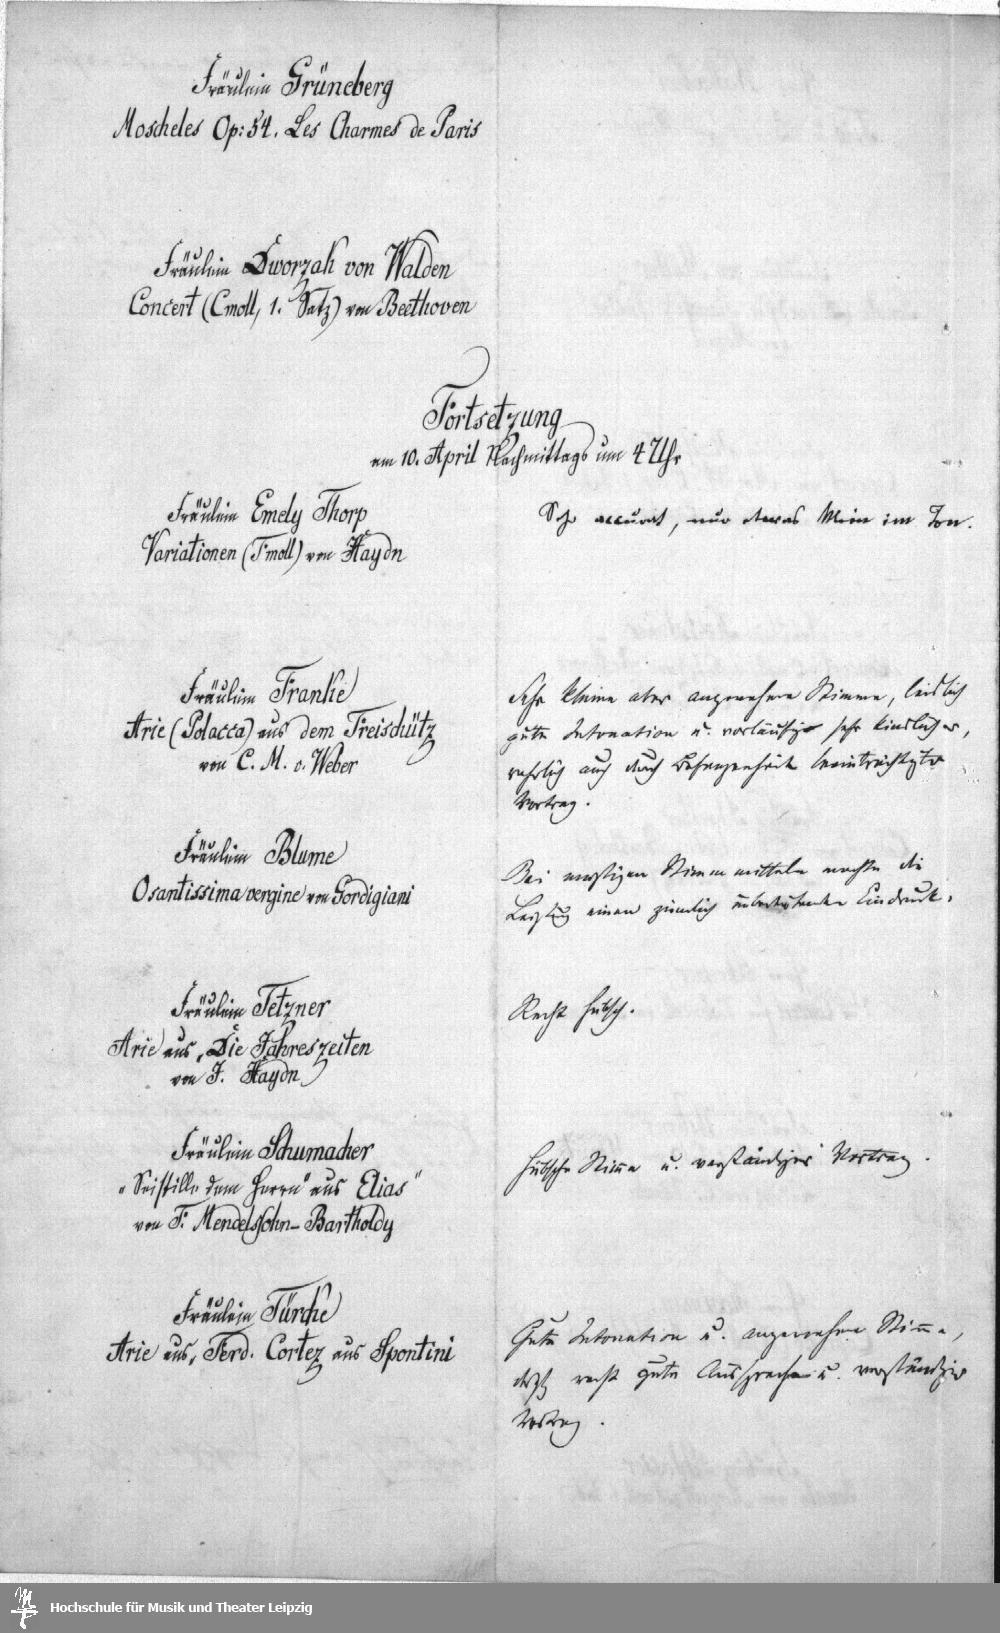 Fräulein Grüneberg
Moscheles Op: 54. Les Charmes de Paris
Fräulein Dworzak von Walden
Concert (Cmoll, 1. Satz) von Beethoven
Fortsetzung
am 10. April Nachmittags um 4 Uhr
Fräulein Emely Thorp
Variationen (Fmoll) von Haydn
Sehr accurat, nur etwas klein im Ton.
Fräulein Franke
Arie (Polacca) aus dem Freischütz
von C. M. v. Weber
Sehr kleine aber angenehme Stimme, leidlich
gute Intonation u. vorläufig sehr kindlicher,
auch durch Befangenheit beeinträchtigter
Vortrag.
Fräulein Blume
O santissima vergine von Gordigiani
Bei mäßigen Stimmmitteln machte die
Leistung einen ziemlich unbedeutenden Eindruck.
Fräulein Tetzner
Arie aus „Die Jahreszeiten
von J. Haydn
Recht hübsch.
Fräulein Schumacher
„Sei stille dem Herrn" aus Elias"
von F. Mendelssohn-Bartholdy
Hübsche Stimme u. verständiger Vortrag.
Fräulein Türcke
Arie aus „Ferd. Cortez aus Spontini
Gute Intonation u. angenehme Stimme,
recht gute Aussprache u. verständiger
Vortrag.
Hochschule für Musik und Theater Leipzig